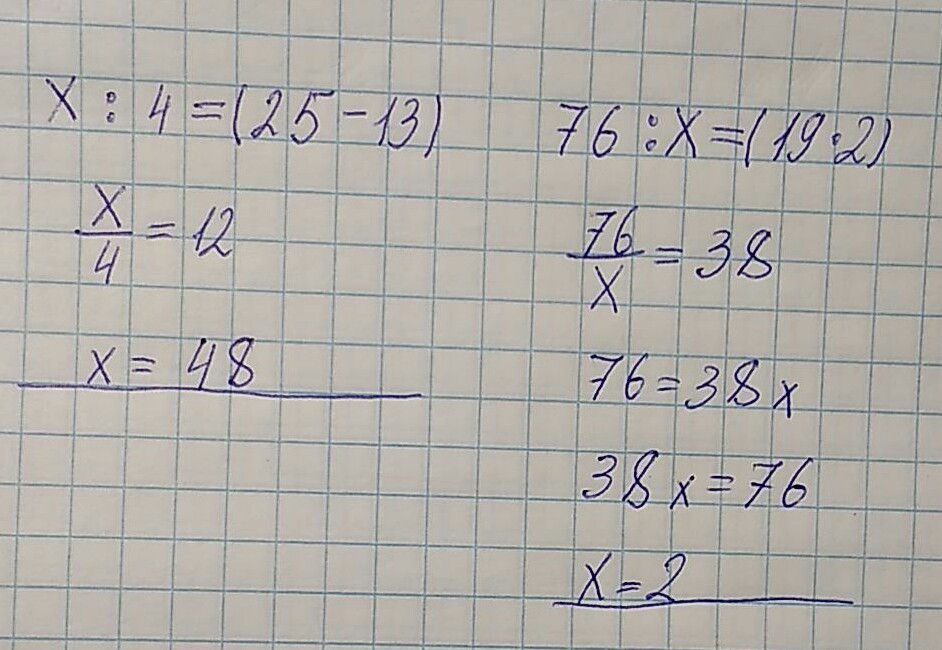 x : 4 = (25 - 13)
x/4 = 12
x = 48
76 : x = (19 · 2)
76/x = 38
76 = 38x
38x = 76
x = 2